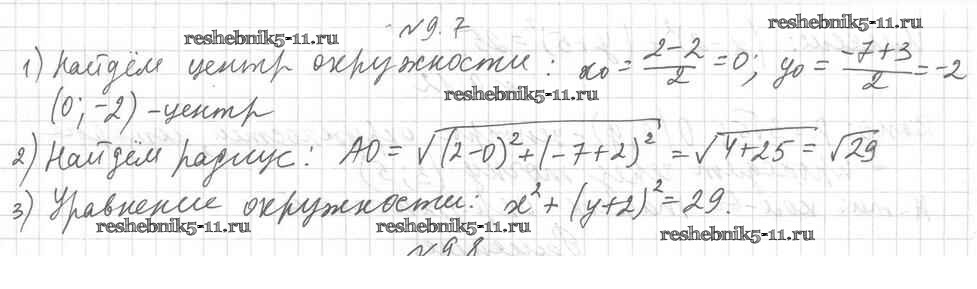 №9.7
reshebnik5-11.ru
reshebnik5-11.ru
1) Найдём центр окружности: x₀ = (2-2)/2 = 0; y₀ = (-7+3)/2 = -2
reshebnik5-11.ru
(0; -2) - центр
2) Найдём радиус: AO = √((2-0)² + (-7+2)²) = √(4+25) = √29
3) Уравнение окружности: x² + (y+2)² = 29.
reshebnik5-11.ru
reshebnik5-11.ru
reshebnik5-11.ru
№9.8